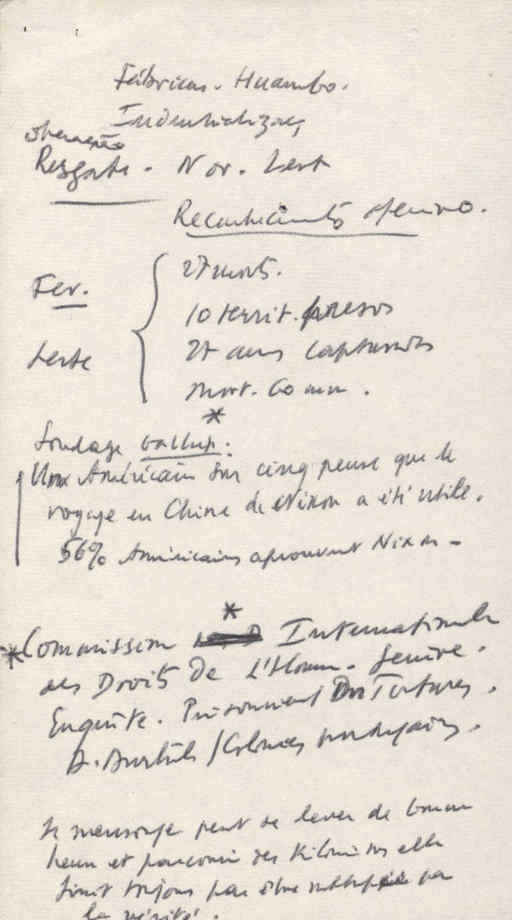 Fábricas. Huambo.
Industrialização
Operação
Resgate. Nor. Leste
Reconhecimento aéreo.
Fev.
Leste
27 mort.
10 territ. presos
27 armas capturados
mort. Comm.
*
Sondage Gallup:
Un Américain sur cinq pense que le
voyage en Chine de Nixon a été utile.
56% Américains aprouvent Nixon -
*
* Commission Internationale
des Droits De L'Homm. Genève.
Enquête. Prisonniers Tortures.
A. Australe / Colonies portugaises.
Le mensonge peut se lever de bonne
heure et parcourir des Kilomètres elle
finit toujours par être rattrapée par
la vérité.